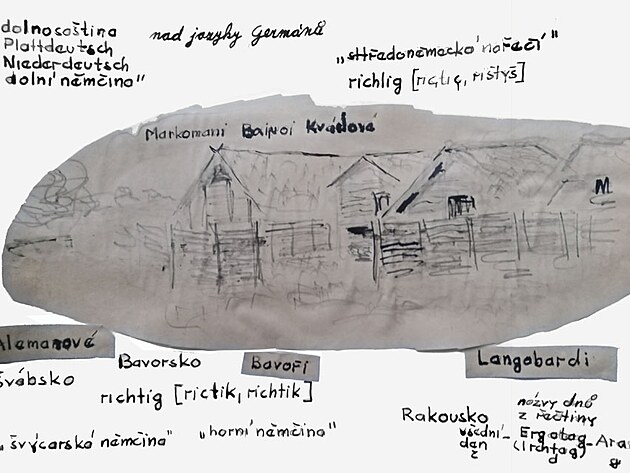 dolnosoština
Plattdeutsch
Niederdeutsch
dolní němčina"
nad jazyky Germánů
„středoněmecká nařečí"
richlig [rictiç, rištyš]
Markomani Bainoi Kvádová
M
Alemanové
Švábsko
Bavorsko
Bavoři
richtig [rictik, richtik]
„švýcarská němčina"
„horní němčina"
Langobardi
Rakousko
názvy dnů
z řečtiny
všední
den
Ergotag
(Irchtag)